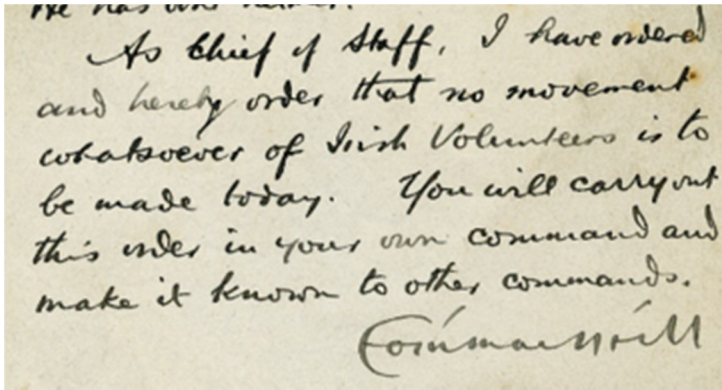 He has
As Chief of Staff, I have ordered
and hereby order that no movement
whatsoever of Irish Volunteers is to
be made today. You will carry out
this order in your own command and
make it known to other commands.
Eoin Mac Néill